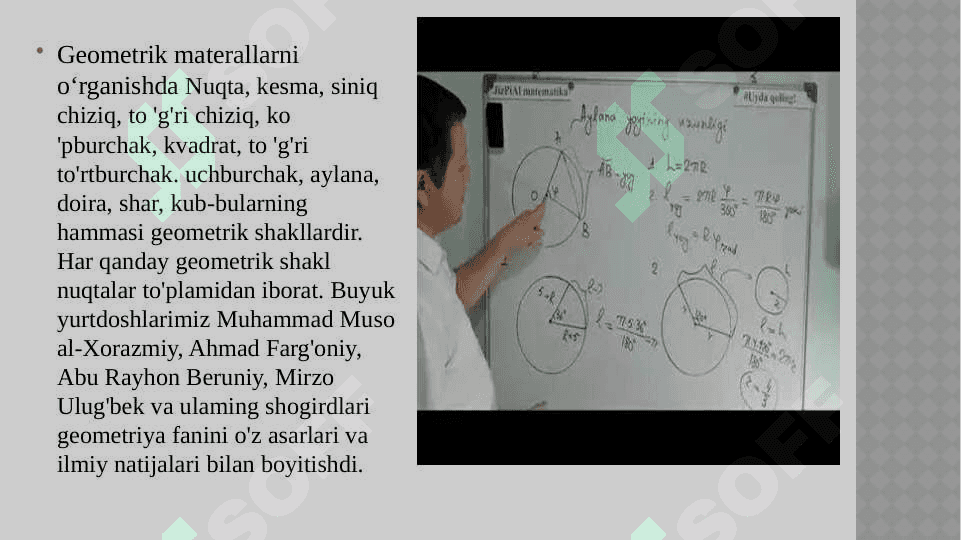 Geometrik materallarni
o‘rganishda Nuqta, kesma, siniq
chiziq, to 'g'ri chiziq, ko
'pburchak, kvadrat, to 'g'ri
to'rtburchak. uchburchak, aylana,
doira, shar, kub-bularning
hammasi geometrik shakllardir.
Har qanday geometrik shakl
nuqtalar to'plamidan iborat. Buyuk
yurtdoshlarimiz Muhammad Muso
al-Xorazmiy, Ahmad Farg'oniy,
Abu Rayhon Beruniy, Mirzo
Ulug'bek va ulaming shogirdlari
geometriya fanini o'z asarlari va
ilmiy natijalari bilan boyitishdi.
JizPiAl matematika
#Uyda qoling!
Aylana yoyining uzunligi
A
O
φ
B
AB - yoy
1. L=2πR
2. l yoy = 2πR φ/360° = πRφ/180° yoki
l yoy = R·φ rad
1
36°
R=5
l = π·5·36°/180° = π
2
l
120°
r
l = L
SOFF
SOFF
SOFF
SOFF
SOFF
SOFF